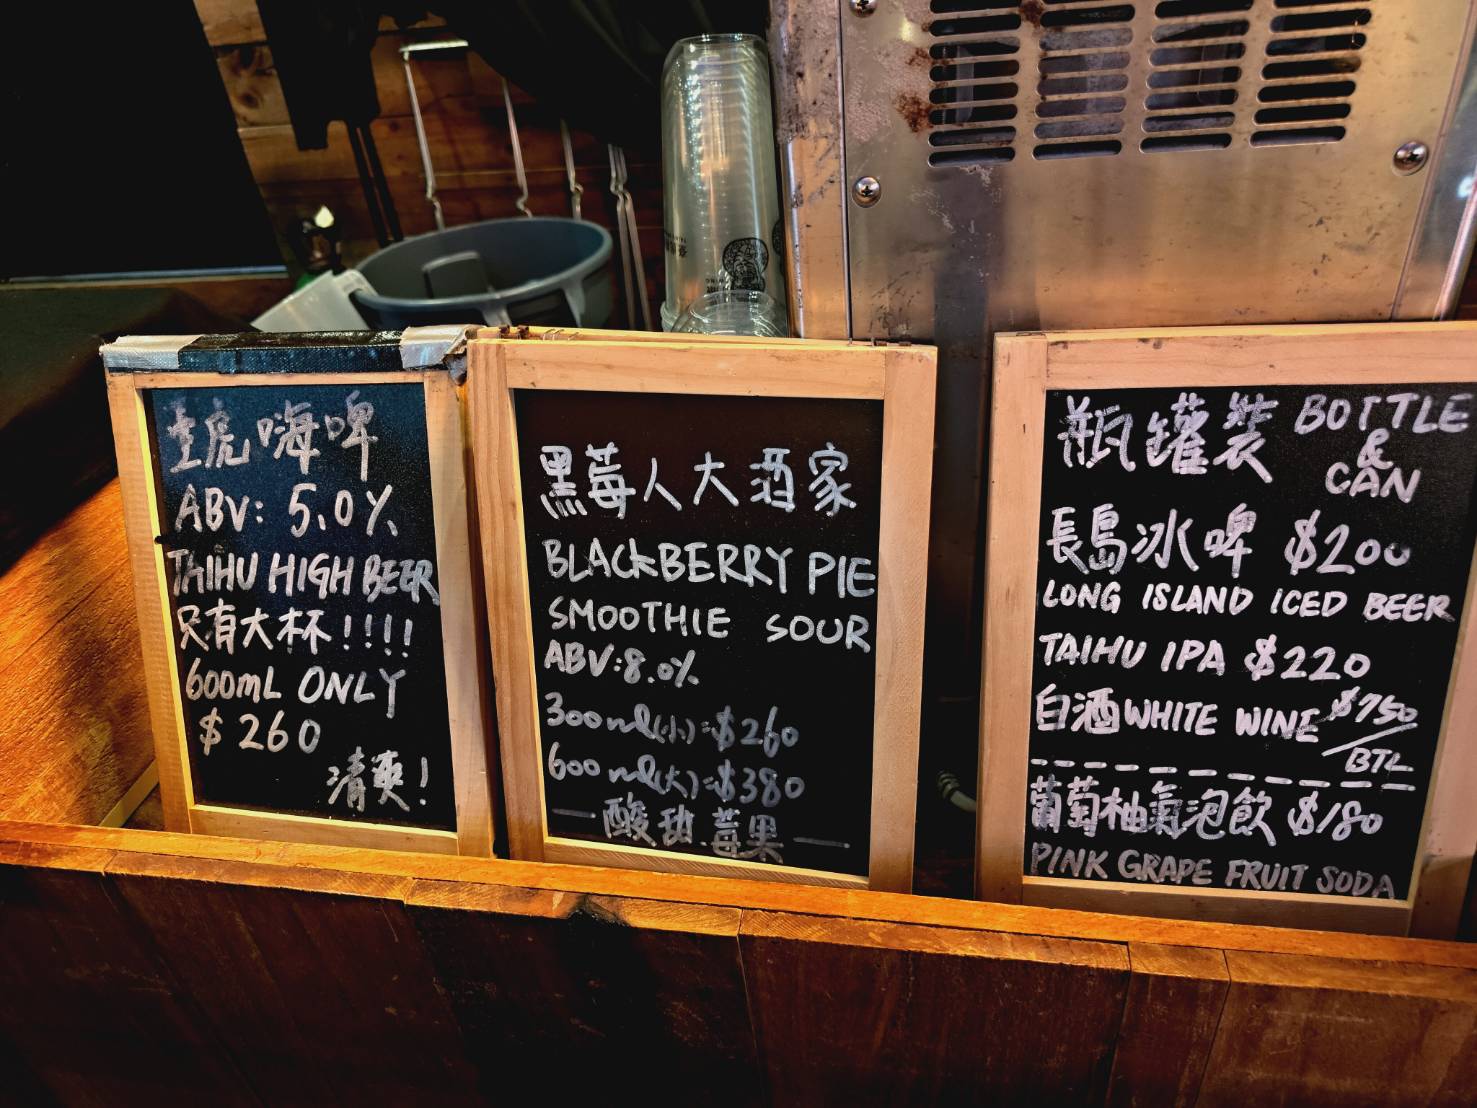 虎嗨啤
ABV: 5.0%
TAIHU HIGH BEER
只有大杯!!!!
600mL ONLY
$260
清爽!
黑莓人大酒家
BLACKBERRY PIE
SMOOTHIE SOUR
ABV:8.0%
300ml(小):$260
600ml(大):$380
—酸甜莓果—
瓶罐裝 BOTTLE
&
CAN
長島冰啤 $200
LONG ISLAND ICED BEER
TAIHU IPA $220
白酒WHITE WINE $750/BTL
葡萄柚氣泡飲 $180
PINK GRAPE FRUIT SODA